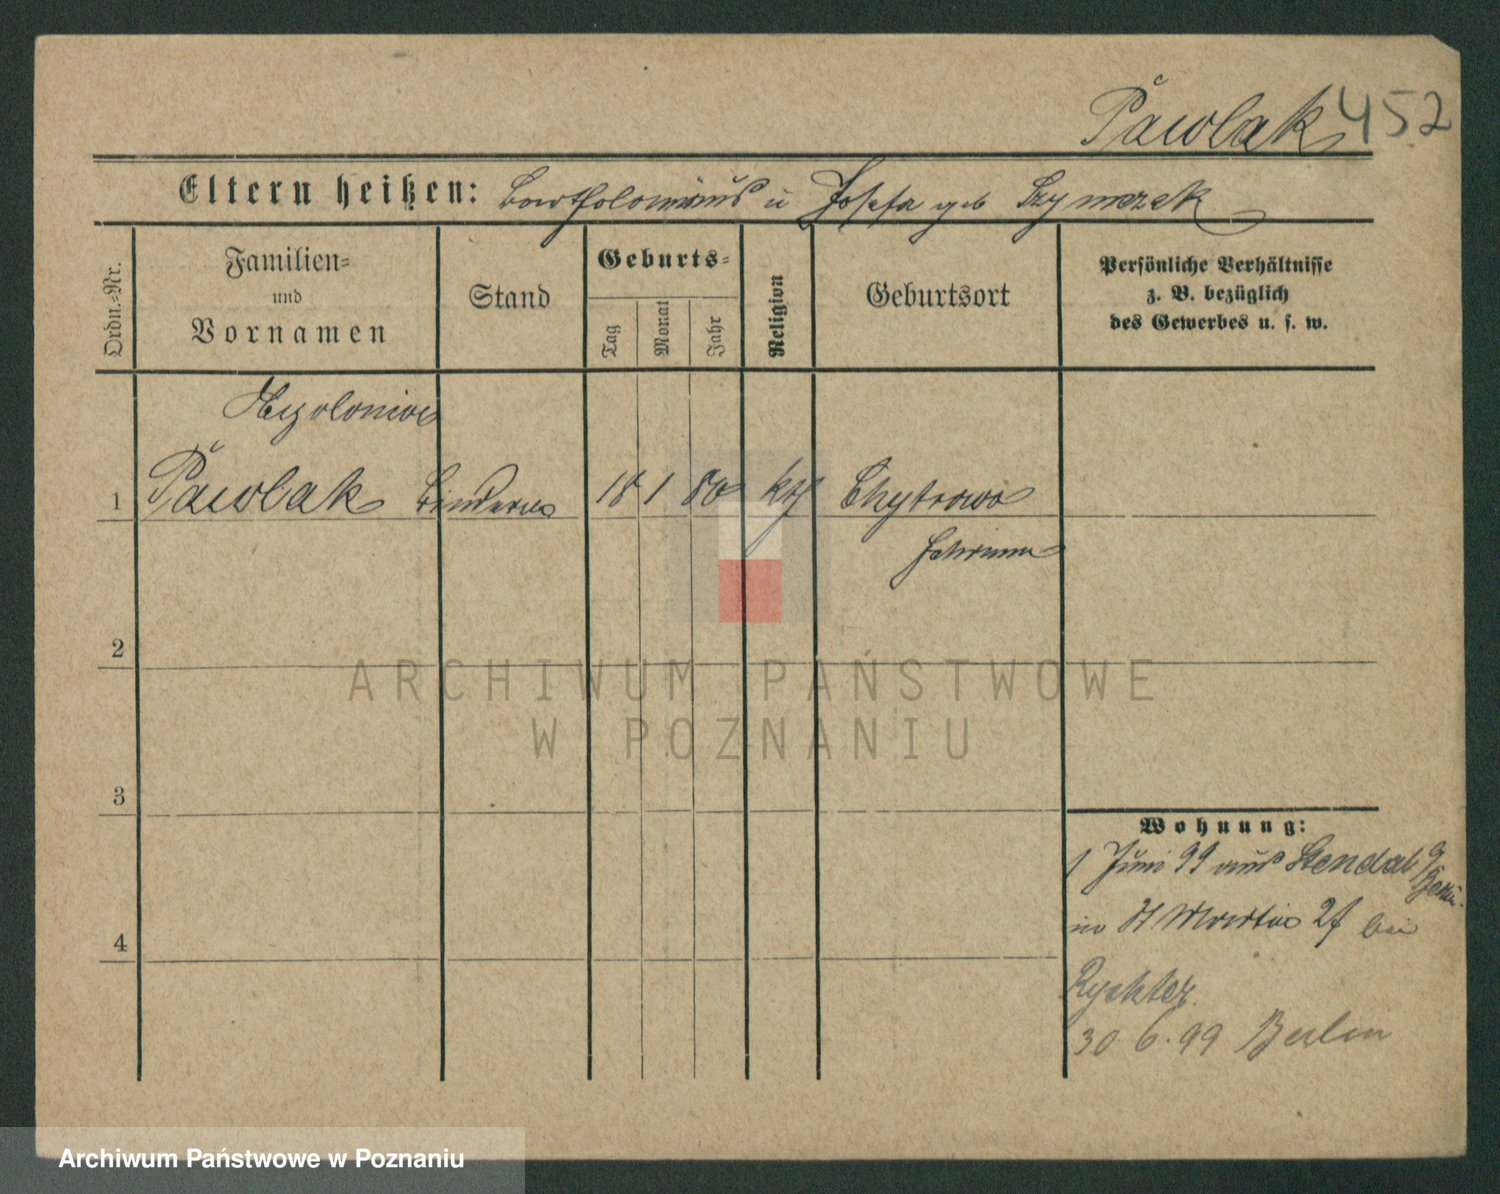 Pawlak 452
Eltern heißen: Bartholomäus u Josefa geb Szymczak
Ordn.=Nr.
Familien=
und
Vornamen
Stand
Geburts=
Tag
Monat
Jahr
Religion
Geburtsort
Persönliche Verhältnisse
z. B. bezüglich
des Gewerbes u. s. w.
1 Pawlak 18 1 80 kth Chytrowo
Schrimm
2
3
4
Wohnung:
1 Juni 99 aus Stendal
St Martin bei
Rychter
30.6.99 Berlin
ARCHIWUM PAŃSTWOWE
W POZNANIU
Archiwum Państwowe w Poznaniu